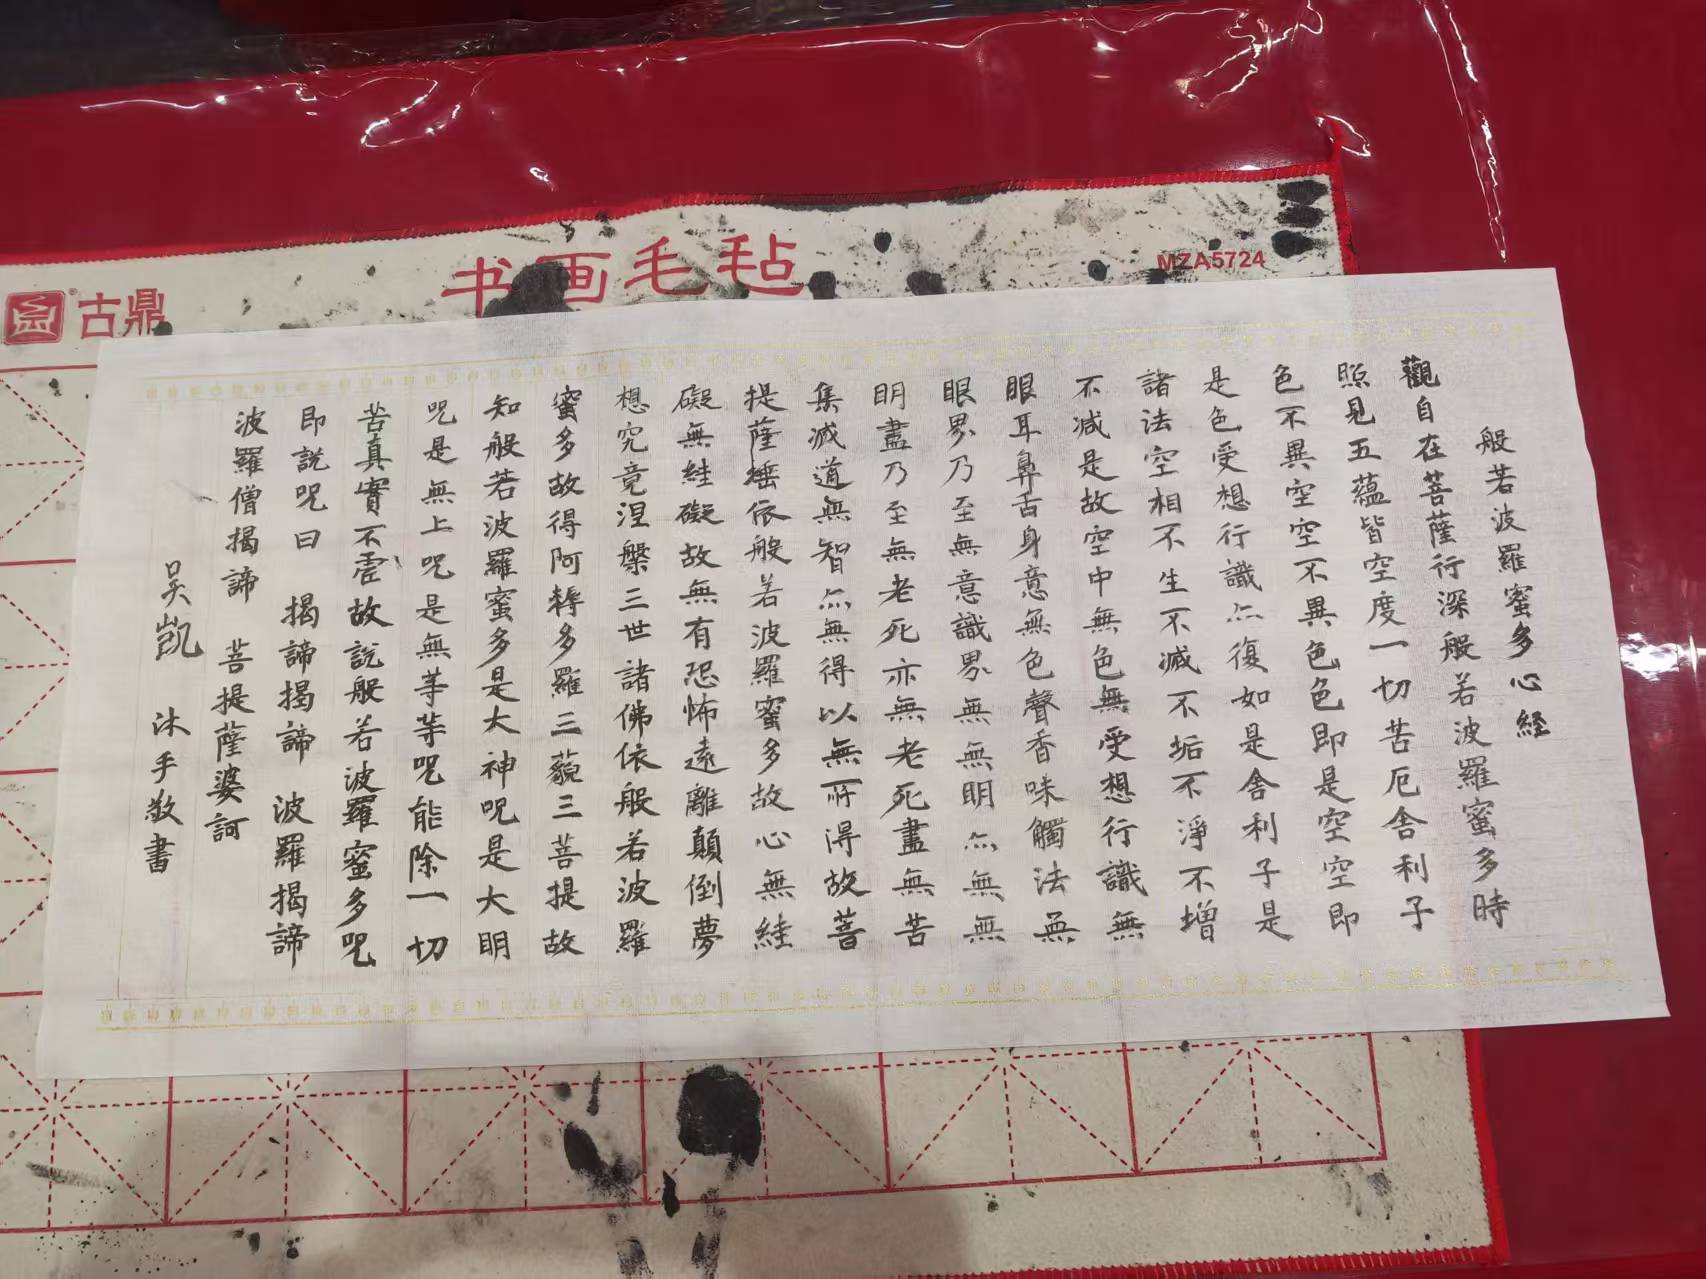 书画毛毡
MZA5724
古鼎
般若波羅蜜多心経
觀自在菩薩行深般若波羅蜜多時
照見五蘊皆空度一切苦厄舎利子
色不異空空不異色色即是空空即
是色受想行識亦復如是舎利子是
諸法空相不生不滅不垢不淨不增
不减是故空中無色無受想行識無
眼耳鼻舌身意無色聲香味觸法無
眼界乃至無意識界無無明亦無無
明盡乃至無老死亦無老死盡無苦
集滅道無智亦無得以無所得故菩
提薩埵依般若波羅蜜多故心無絓
礙無絓礙故無有恐怖遠離顛倒夢
想究竟涅槃三世諸佛依般若波羅
蜜多故得阿耨多羅三藐三菩提故
知般若波羅蜜多是大神咒是大明
咒是無上咒是無等等咒能除一切
苦真實不虛故說般若波羅蜜多咒
即說咒曰 揭諦揭諦 波羅揭諦
波羅僧揭諦 菩提薩婆訶
吴凯 沐手敬書